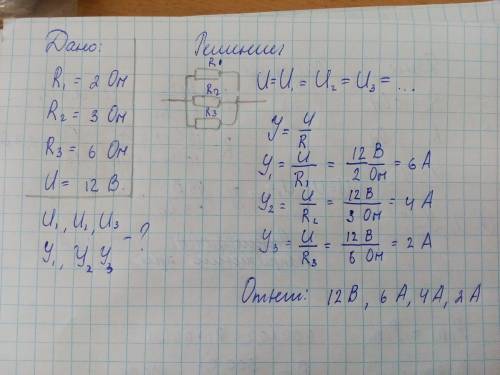 Дано:
R₁ = 2 Ом
R₂ = 3 Ом
R₃ = 6 Ом
U = 12 В
U₁, U₂, U₃
У₁, У₂ У₃ - ?
Решение:
R₁
R₂
R₃
U=U₁ = U₂ = U₃ = ...
У = U/R
У₁ = U/R₁ = 12 В/2 Ом = 6 А
У₂ = U/R₂ = 12 В/3 Ом = 4 А
У₃ = U/R₃ = 12 В/6 Ом = 2 А
Ответ: 12 В, 6 А, 4 А, 2 А